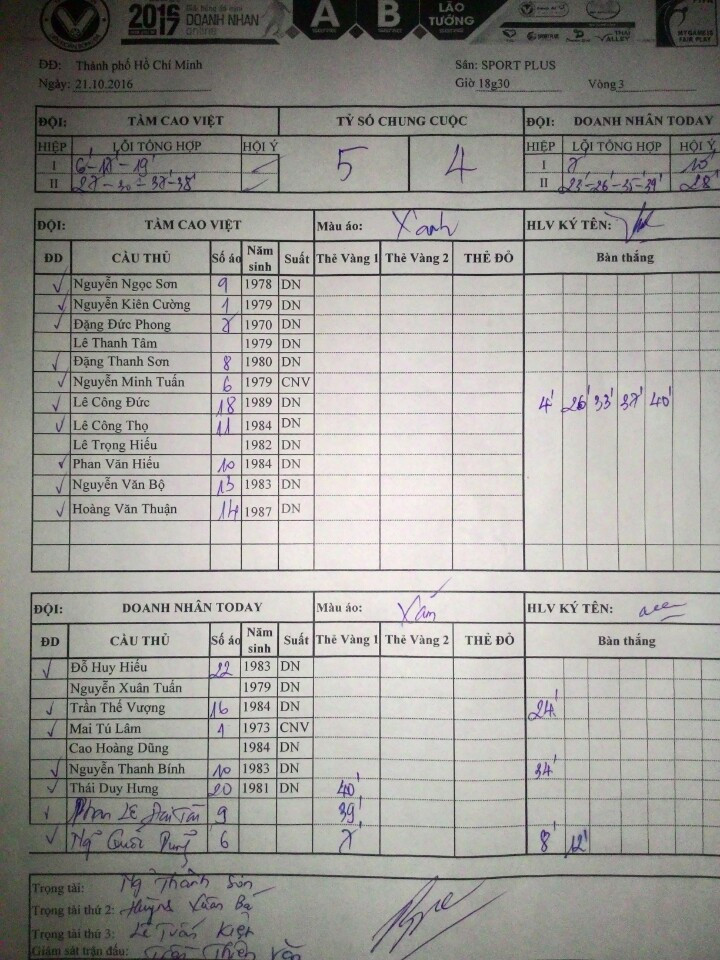 2016 2017 DOANH NHÂN online A B LÃO TƯỚNG
THAI VALLEY FAIR PLAY
ĐĐ: Thành phố Hồ Chí Minh Sân: SPORT PLUS
Ngày: 21.10.2016 Giờ 18g30 Vòng 3
ĐỘI: TÂM CAO VIỆT TỶ SỐ CHUNG CUỘC ĐỘI: DOANH NHÂN TODAY
HIỆP LỖI TỔNG HỢP HỘI Ý 5 4 HIỆP LỖI TỔNG HỢP HỘI Ý
I 6'-18'-19' I 7' 10'
II 27'-30'-37'-38' II 23'-26'-35'-39' 28'
ĐỘI: TÂM CAO VIỆT Màu áo: Xanh HLV KÝ TÊN:
ĐD CẦU THỦ Số áo Năm sinh Suất Thẻ Vàng 1 Thẻ Vàng 2 THẺ ĐỎ Bàn thắng
✓ Nguyễn Ngọc Sơn 9 1978 DN
✓ Nguyễn Kiên Cường 1 1979 DN
✓ Đặng Đức Phong 7 1970 DN
Lê Thanh Tâm 1979 DN
✓ Đặng Thanh Sơn 8 1980 DN
✓ Nguyễn Minh Tuấn 6 1979 CNV
✓ Lê Công Đức 18 1989 DN 4' 26' 33' 37' 40'
✓ Lê Công Thọ 11 1984 DN
Lê Trọng Hiếu 1982 DN
✓ Phan Văn Hiếu 10 1984 DN
✓ Nguyễn Văn Bộ 13 1983 DN
✓ Hoàng Văn Thuận 14 1987 DN
ĐỘI: DOANH NHÂN TODAY Màu áo: Xám HLV KÝ TÊN:
ĐD CẦU THỦ Số áo Năm sinh Suất Thẻ Vàng 1 Thẻ Vàng 2 THẺ ĐỎ Bàn thắng
✓ Đỗ Huy Hiếu 22 1983 DN
Nguyễn Xuân Tuấn 1979 DN
✓ Trần Thế Vượng 16 1984 DN 24'
✓ Mai Tú Lâm 1 1973 CNV
Cao Hoàng Dũng 1984 DN
✓ Nguyễn Thanh Bính 10 1983 DN 34'
✓ Thái Duy Hưng 20 1981 DN 40'
✓ Phan Lê Tài 9 39'
✓ Ng Quốc 6 7' 8' 12'
Trọng tài: Ng Thành Sơn
Trọng tài thứ 2: Huỳnh Xuân Bá
Trọng tài thứ 3: Lê Tuấn Kiệt
Giám sát trận đấu: Trần Thiện